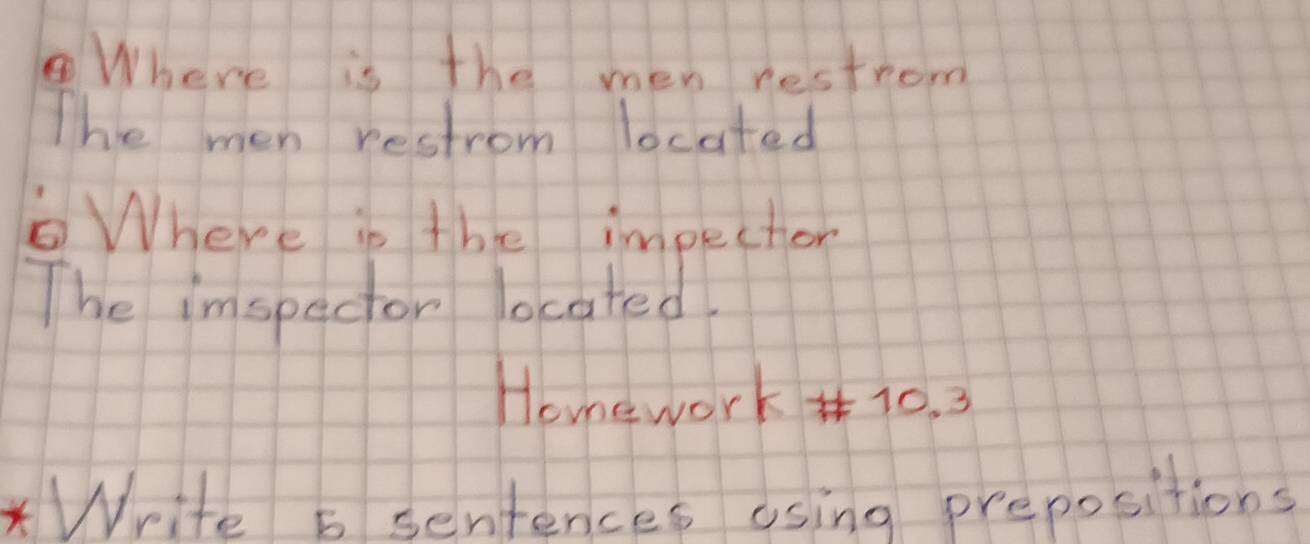 ④ Where is the men restrom
The men restrom located
⑤ Where is the impector
The imspector located.
Homework # 10.3
* Write 5 sentences using prepositions